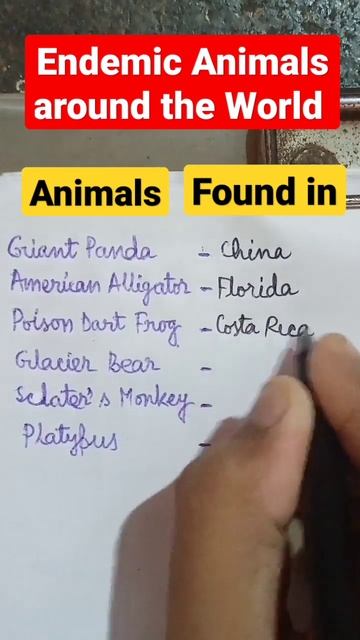 Endemic Animals
around the World
Animals Found in
Giant Panda - China
American Alligator - Florida
Poison Dart Frog - Costa Rica
Glacier Bear -
Sclater's Monkey -
Platybus -